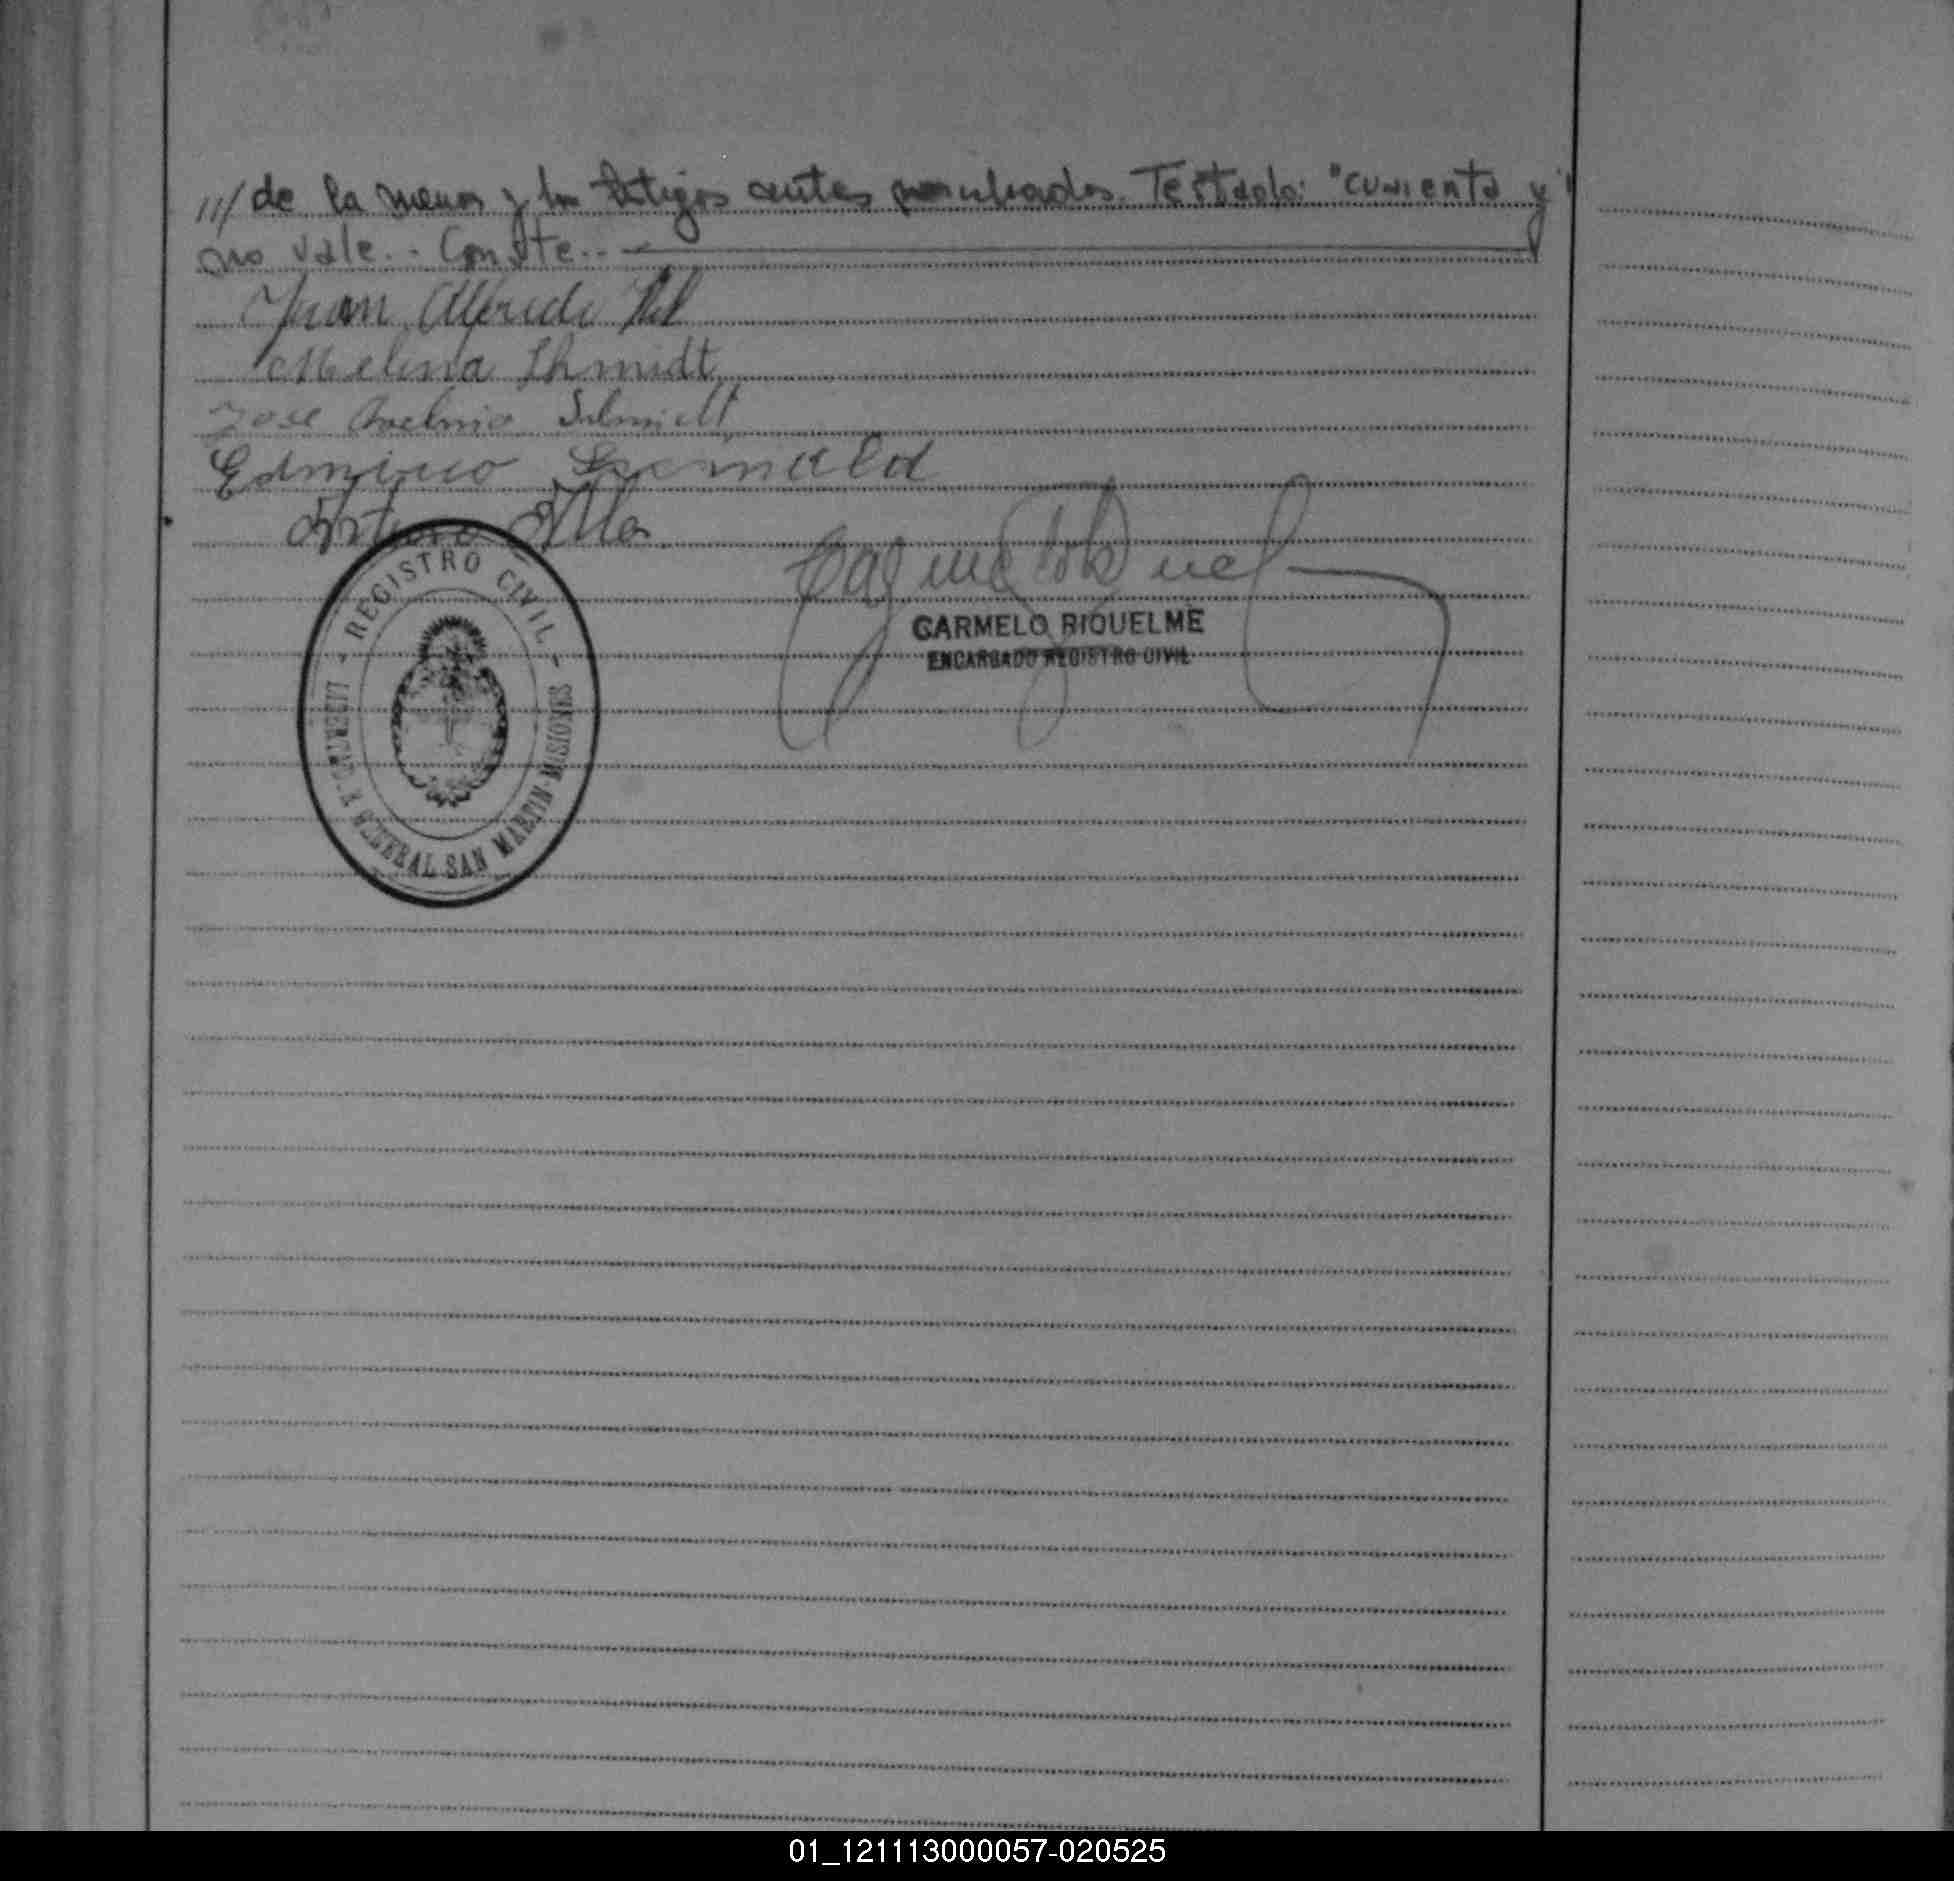 ///de la menor y los testigos antes nombrados. Testado: "cuarenta y"
no vale.- Conste.-
Juan Alfredo
Melina Shmidt
Jose Avelino Schmidt
Edmundo
Arturo
CARMELO RIQUELME
ENCARGADO REGISTRO CIVIL
- REGISTRO CIVIL -
LIBERTAD.R GENERAL SAN MARTIN-MISIONES
01_121113000057-020525